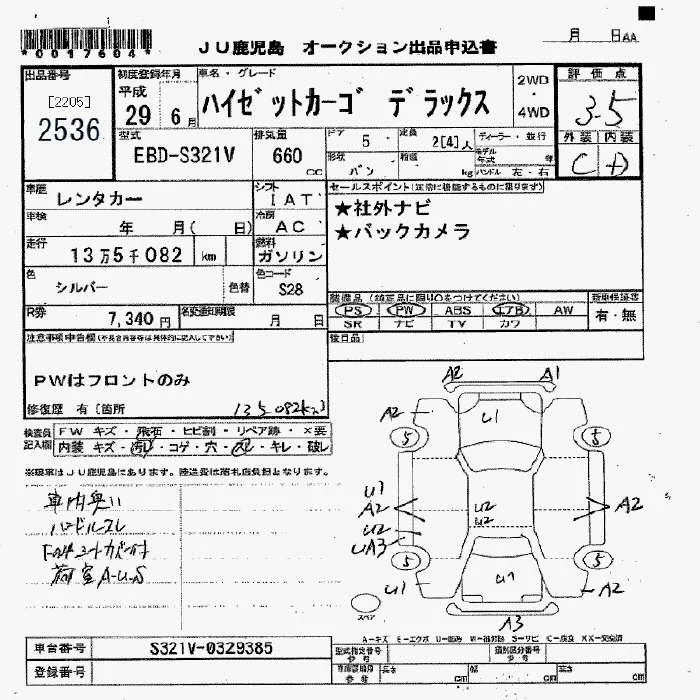 *0017604*
JU鹿児島 オークション出品申込書
月 日AA
出品番号
[2205]
2536
初度登録年月
平成
29 6月
車名・グレード
ハイゼットカーゴ デラックス
2WD
・
4WD
評価点
3.5
外装 内装
C D
型式
EBD-S321V
排気量
660
CC
ドア
5
定員
2[4]人
ディーラー・並行
モデル
年式 年
形状
バン
積載
kg
ハンドル 左・右
車歴
レンタカー
シフト
IAT
車検
年 月( 日)
冷房
AC
走行
13万5千082 km
燃料
ガソリン
色
シルバー
色替
色コード
S28
R券
7,340円
名変通知期限
月 日
セールスポイント(正常に機能するものに限ります)
★社外ナビ
★バックカメラ
装備品(純正品に限り○をつけてください)
PS PW ABS エアB AW
SR ナビ TV カワ
新車保証書
有・無
後日品
注意事項申告欄(不具合内容等は具体的に記入して下さい)
PWはフロントのみ
修復歴 有[箇所
135082km
検査員
記入欄
FW キズ・飛石・ヒビ割・リペア跡・×要
内装 キズ・汚レ・コゲ・穴・スレ・キレ・破レ
※現車はJU鹿児島にあります。陸送費は落札店負担となります。
車内臭い
ハンドルスレ
荷室A-U-S
A2 A1
A2
U1
5 5
U1
A2
U2
UA3
U2
U2
A2
5 5
U1
U1
A2
A3
スペア
A-キズ E-エクボ U-凹み W-補修跡 S-サビ C-腐食 XX-交換済
車台番号
S321V-0329385
登録番号
型式指定番号
参考
類別区分番号
参考
車検証寸法
参考
長さ cm
幅 cm
高さ cm